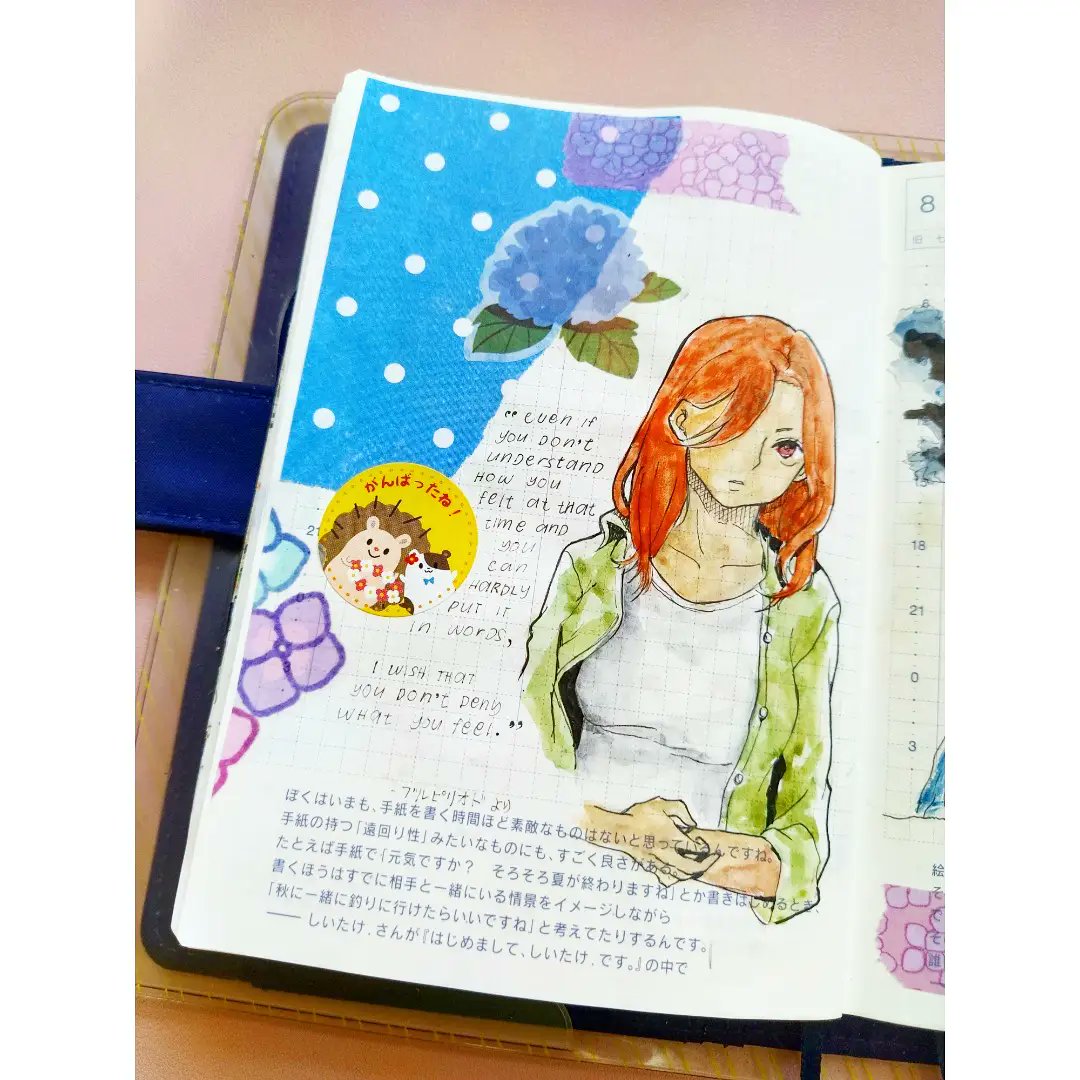 "even if
you don't
understand
how you
felt at that
time and
you
can
hardly
put it
in words,
I wish that
you don't deny
what you feel."
- ブルピリオド より
がんばったね!
21
ぼくはいまも、手紙を書く時間ほど素敵なものはないと思っているんですね。
手紙の持つ「遠回り性」みたいなものにも、すごく良さがある。
たとえば手紙で「元気ですか? そろそろ夏が終わりますね」とか書きはじめるとき、
書くほうはすでに相手と一緒にいる情景をイメージしながら
「秋に一緒に釣りに行けたらいいですね」と考えてたりするんです。
—— しいたけ.さんが『はじめまして、しいたけ.です。』の中で
8
旧 七
6
12
15
18
21
0
3
絵
そ
で
そ
誰